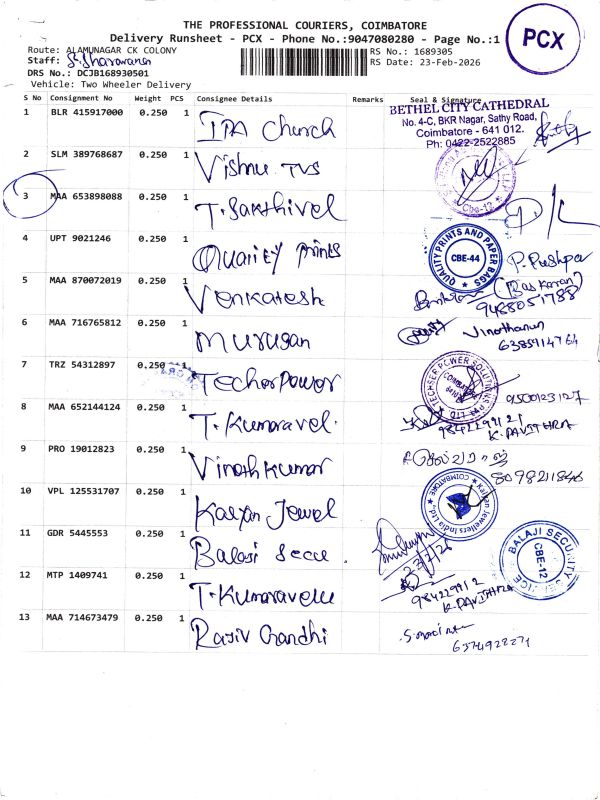 THE PROFESSIONAL COURIERS, COIMBATORE
Delivery Runsheet - PCX - Phone No.:9047080280 - Page No.:1
PCX
Route: ALAMUNAGAR CK COLONY
RS No.: 1689305
Staff:
RS Date: 23-Feb-2026
DRS No.: DCJB168930501
Vehicle: Two Wheeler Delivery
S No Consignment No Weight PCS Consignee Details Remarks Seal & Signature
1 BLR 415917000 0.250 1 IPA Church
BETHEL CITY CATHEDRAL
No. 4-C, BKR Nagar, Sathy Road,
Coimbatore - 641 012.
Ph: 0422-2522885
2 SLM 389768687 0.250 1 Vishnu TVS
Cbe-12
3 MAA 653898088 0.250 1 T. Sakthivel
4 UPT 9021246 0.250 1 Quality Prints
QUALITY PRINTS AND PAPER BAGS
CBE-44
P. Pushpa
5 MAA 870072019 0.250 1 Venkatesh
(Baskaran)
9488051788
6 MAA 716765812 0.250 1 Murugan
6385914764
7 TRZ 54312897 0.250 1 Techser Power
TECHSER POWER SOLUTIONS
8 MAA 652144124 0.250 1 T. Kumaravel.
K. PAVITHRA
9 PRO 19012823 0.250 1 Vinoth Kumar
8098211846
10 VPL 125531707 0.250 1 Kalyan Jewel
Kalyan Jewelers India Ltd
COIMBATORE
11 GDR 5445553 0.250 1 Balaji Secu.
BALAJI SECURITY SERVICE
CBE-12
12 MTP 1409741 0.250 1 T. Kumaravelu
K. PAVITHRA
13 MAA 714673479 0.250 1 Rajiv Gandhi
6374928271